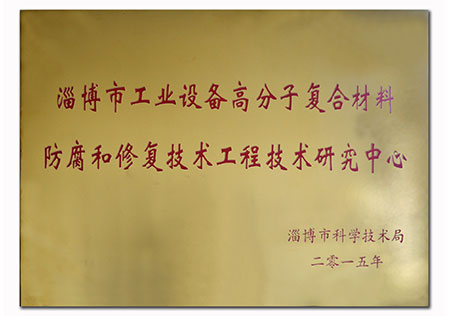 淄博市工业设备高分子复合材料
防腐和修复技术工程技术研究中心
淄博市科学技术局
二零一五年